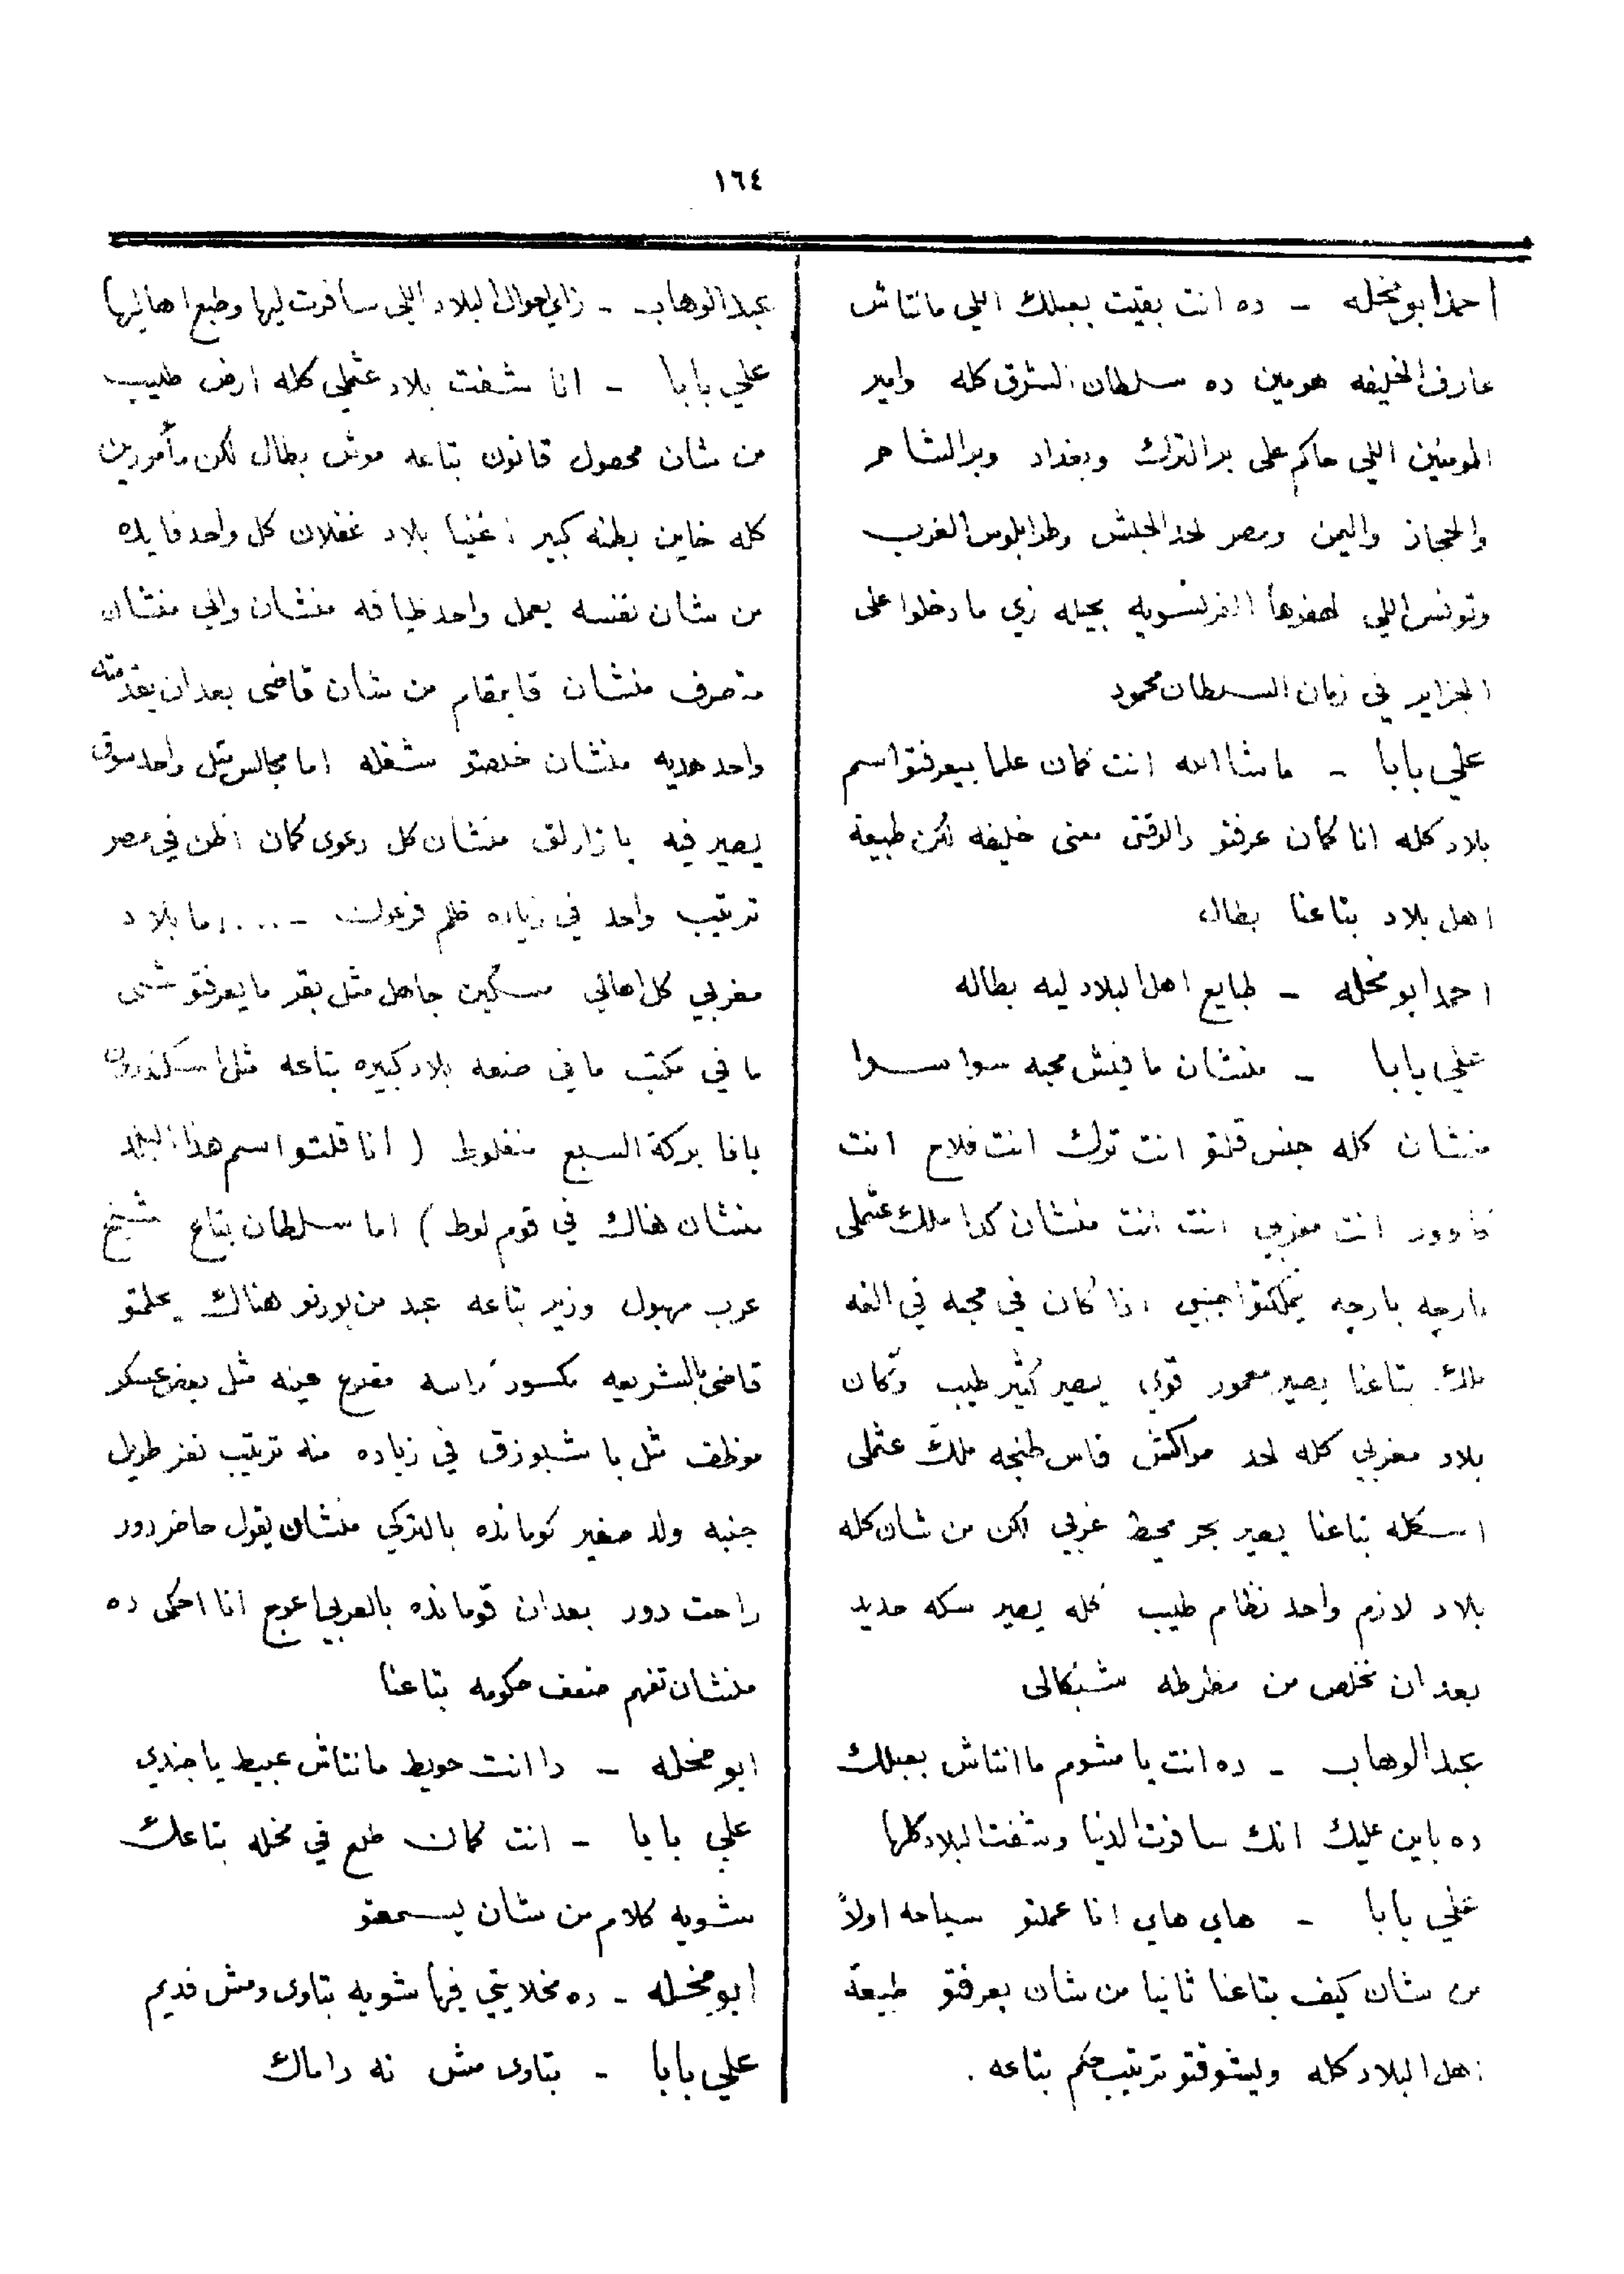 ١٦٤
احمد ابو مخله - ده انت بقيت بعبلك اللي مانتاش
عارف الخليفه هو مين ده سلطان الشرق كله وامير
المومنين اللي حاكم على بر الترك وبغداد وبر الشام
والحجاز واليمن ومصر لحد الحبش وطرابلوس الغرب
وتونس اللي لهفوها الفرنسويه بحيله زي ما دخلوا على
الجزاير في زمان السلطان محمود
علي بابا - ماشا الله انت كمان علما بيعرفتو اسم
بلاد كله انا كمان عرفتو دالوقتى معنى خليفه لكن طبيعة
اهل بلاد بتاعنا بطال
احمد ابو مخله - طبايع اهل البلاد ليه بطاله
علي بابا - منشان مافيش محبه سوا سوا
منشان كله جنس قلتو انت ترك انت فلاح انت
انت مغربي انت انت منشان كدا ملك عثملى
بارچه بارچه يملكتو اجنبي اذا كان في محبه في الفه
ملك بتاعنا يصير معمور قوي يصير كثير طيب وكان
بلاد مغربي كله لحد مراكش فاس طنجه ملك عثملى
اسكله بتاعنا يصير بحر محيط غربي لكن من شان كله
بلاد لازم واحد نظام طيب كله يصير سكه حديد
بعد ان نخلص من مظرطه شنكالى
عبد الوهاب - ده انت يا مشوم ما انتاش بعبلك
ده باين عليك انك سافرت الدنيا وشفت البلاد كلها
علي بابا - هاي هاي انا عملتو سياحه اولاً
من شان كيف بتاعنا ثانيا من شان يعرفتو طبيعة
اهل البلاد كله وليشوفتو ترتيب حكم بتاعه .
عبد الوهاب - زاي احوال البلاد اللي سافرت ليها وطبع اهاليها
علي بابا - انا شفت بلاد عثملي كله ارض طيب
من شان محصول قانون بتاعه موش بطال لكن مأمورين
كله خاين بطنه كبير اغنيا بلاد غفلان كل واحد فايده
من شان نفسه يعمل واحد ظيافه منشان والي منشان
متصرف منشان قايمقام من شان قاضي بعد ان يقدمته
واحد هديه منشان خلصتو شغله اما مجالس مثل واحد سوق
يصير فيه بازارلق منشان كل دعوى كمان اظن في مصر
ترتيب واحد في زياده ظلم فرعون - .... اما بلاد
مغربي كل اهالي مسكين جاهل مثل بقر ما يعرفتو شى
ما في مكتب ما في صنعه بلاد كبيره بتاعه مثل اسكندريه
يافا بركة السبع منفلوط ( انا قلتو اسم هذا البلد
منشان هناك في قوم لوط ) اما سلطان بتاع شيخ
عرب مهبول وزير بتاعه عبد من بورنو هناك يعلمتو
قاضي بالشريعه مكسور راسه مقلع عينه مثل بعض عسكر
موظف مثل باشبوزق في زياده منه ترتيب نفر طويل
جنبه ولد صغير كوماندە بالتركي منشان يقول حاضر دور
راحت دور بعد ان قومانده بالعربي اعوج انا احكى ده
منشان تفهم ضعف حكومه بتاعنا
ابو مخله - دا انت حويط مانتاش عبيط يا جندي
علي بابا - انت كمان طلع في مخله بتاعك
شويه كلام من شان يسمعتو
ابو مخله - ده مخلايتي فيها شويه بتاوى ومش قديم
علي بابا - بتاوى مش نه داماك